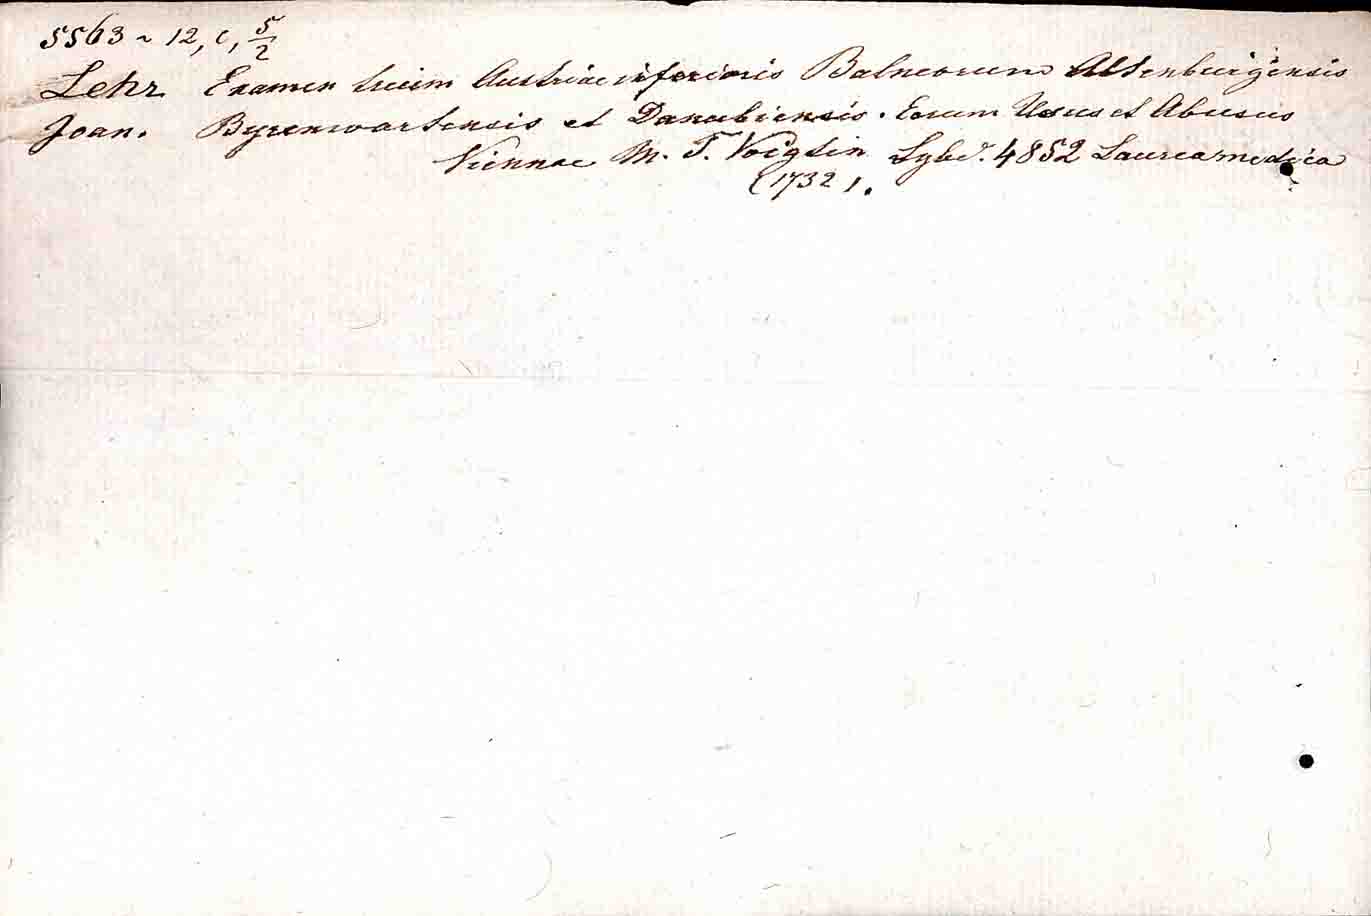 5563 ~ 12, C, 5/2
Lehr Examen trium Austriae inferioris Balneorum Altenburgensis
Joan. Byrenwartensis et Danubiensis. Eorum Usus et Abusus
Viennae M. T. Voigtin 4852 Laurea medica
(1732).